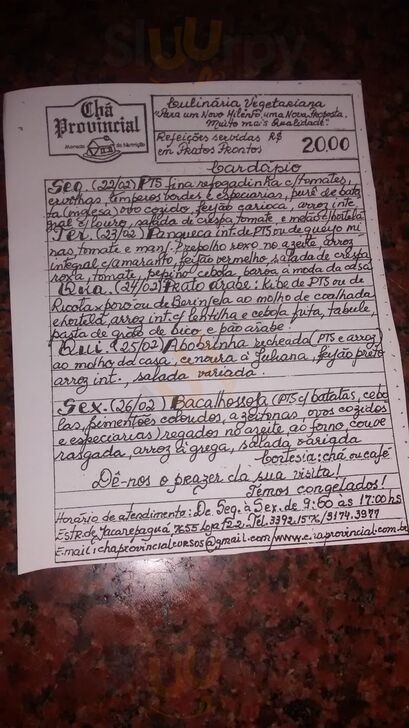 Sluurpy
Chá
Provincial
Culinária Vegetariana
"Para um Novo Milênio, uma Nova Proposta.
Muito mais Qualidade".
Refeições servidas R$
em Pratos Prontos
20,00
Cardápio
Seg. (22/02) PTS fina refogadinha c/tomates,
ervilhas, temperos verdes e especiarias, purê de bata
ta (inglesa) ovo cozido, feijão carioca, arroz inte
gral c/louro, salada de crespa, tomate e melão c/hortelã
Ter. (23/02) Panqueca int. de PTS ou de queijo mi
nas, tomate e manj. Repolho roxo no azeite, arroz
integral c/amaranto, feijão vermelho, salada de crespa
roxa, tomate, pepino, cebola, baroa à moda da casa
Qua. (24/02) Prato árabe: kibe de PTS ou de
Ricota x poró ou de Berinjela ao molho de coalhada
e hortelã, arroz int. c/ lentilha e cebola frita, tabule,
pasta de grão de bico e pão árabe.
Qui. (25/02) Abobrinha recheada (PTS e arroz)
ao molho da casa, cenoura à Juliana, feijão preto
arroz int., salada variada.
Sex. (26/02) Bacalhosoja (PTS c/ batatas, cebo
las, pimentões coloridos, azeitonas, ovos cozidos
e especiarias) regados no azeite ao forno, couve
rasgada, arroz à grega, salada variada
Cortesia: chá ou café
Dê-nos o prazer da sua visita!
Temos congelados!
Horário de atendimento: De Seg. à Sex. de 9:00 às 17:00hs
Estr. de Jacarepaguá, 7655 loja 22. Tel. 3392.1576/9174.3977
Email: chaprovincialcursos@gmail.com/www.chaprovincial.com.br